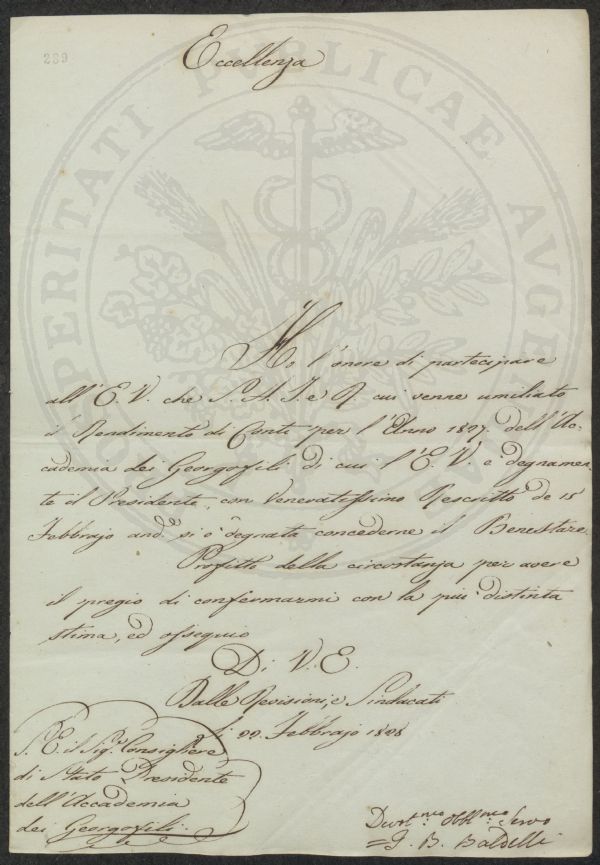 289
Eccellenza
PROSPERITATI PVBLICAE AVGENDAE
Ho l'onore di partecipare
all'E. V. che S. A. I. e R. cui venne umiliato
il Rendimento di Conti per l'Anno 1827. dell'Ac-
cademia dei Georgofili di cui l'E. V. è degnamen-
te il Presidente, con Veneratissimo Rescritto de 15
Febbrajo and.e si è degnata concederne il Benestare.
Profitto della circostanza per avere
il pregio di confermarmi con la più distinta
stima, ed ossequio
Di V. E.
Dalle Revisioni, e Sindacati
li 22. Febbrajo 1828
S. E. il Sig.r Consigliere
di Stato Presidente
dell'Accademia
dei Georgofili.
Devot.mo Obbl.mo Servo
= G. B. Baldelli